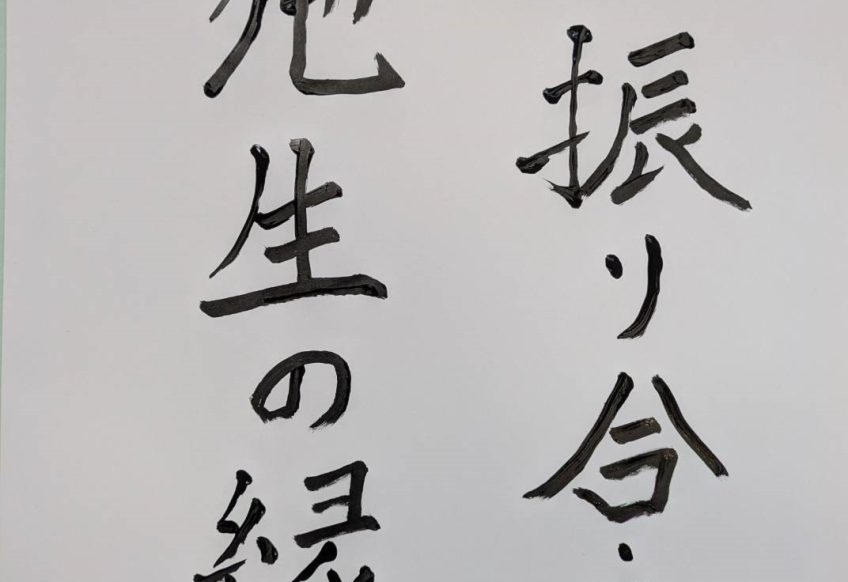 振り合
他生の縁